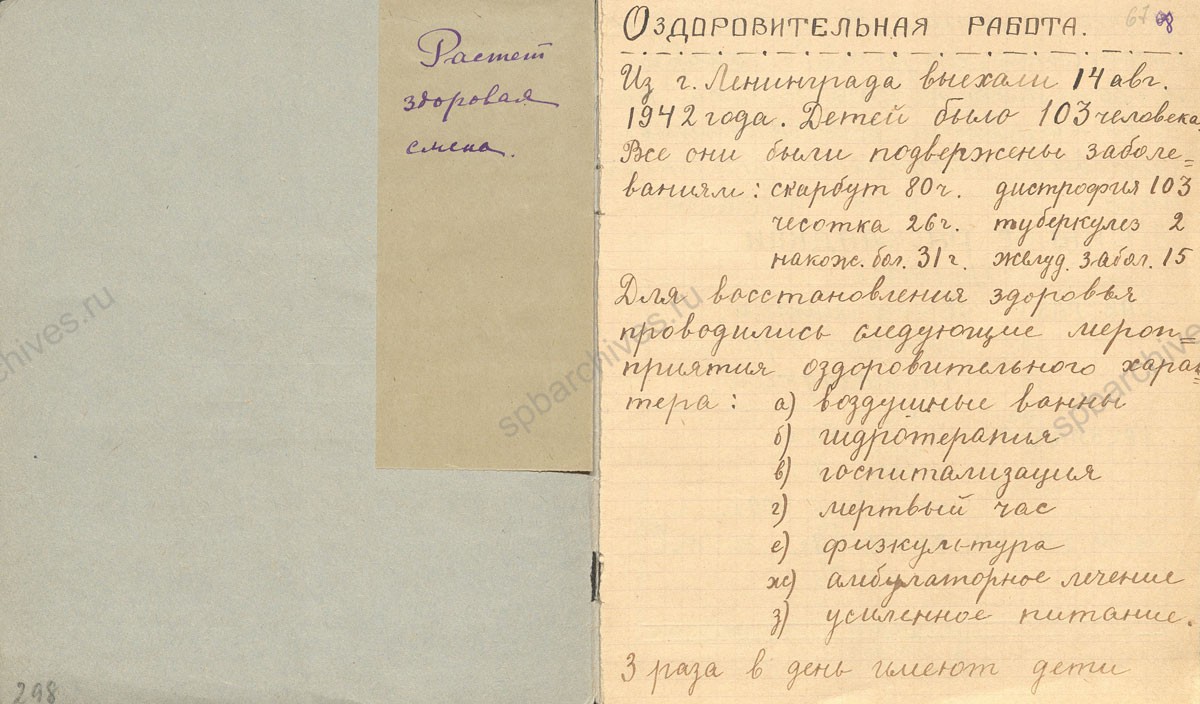 Растет
здоровая
смена.
298
67 68
Оздоровительная работа.
Из г. Ленинграда выехали 14 авг.
1942 года. Детей было 103 человека
Все они были подвержены заболе=
ваниям: скарбут 80 ч. дистрофия 103
чесотка 26 г. туберкулез 2
накож. бол. 31 г. желуд. забол. 15
Для восстановления здоровья
проводились следующие мероп=
приятия оздоровительного харак=
тера: а) воздушные ванны
б) гидротерапия
в) госпитализация
г) мертвый час
е) физкультура
ж) амбулаторное лечение
з) усиленное питание.
3 раза в день имеют дети
spbarchives.ru